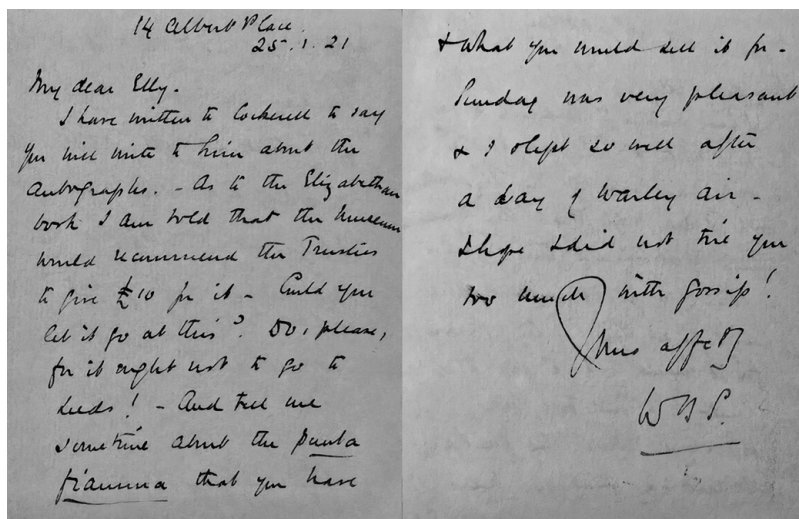 14 Albert Place.
25.1.21
My dear Elly.
I have written to Cockerell to say
you will write to him about the
autographs. – As to the Elizabethan
book I am told that the Museum
would recommend the Trustees
to give £10 for it – Could you
let it go at this? Do, please,
for it ought not to go to
Leeds! – And tell me
sometime about the punta
fiamma that you have
& what you would sell it for –
Sunday was very pleasant
& I slept so well after
a day of Warley air –
I hope I did not tire you
too much with gossip!
Yours affectly